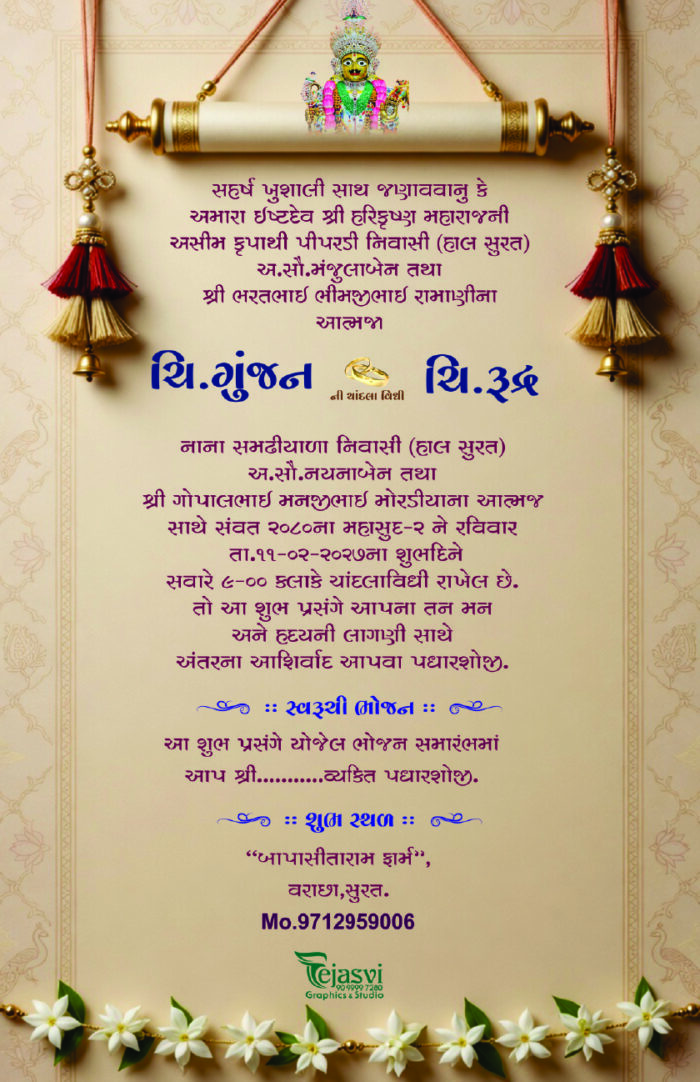 સહર્ષ ખુશાલી સાથ જણાવવાનુ કે
અમારા ઈષ્ટદેવ શ્રી હરિકૃષ્ણ મહારાજની
અસીમ કૃપાથી પીપરડી નિવાસી (હાલ સુરત)
અ.સૌ.મંજુલાબેન તથા
શ્રી ભરતભાઈ ભીમજીભાઈ રામાણીના
આત્મજા
ચિ.ગુંજન ની ચાંદલા વિધી ચિ.રૂદ્ર
નાના સમઢીયાળા નિવાસી (હાલ સુરત)
અ.સૌ.નયનાબેન તથા
શ્રી ગોપાલભાઈ મનજીભાઈ મોરડીયાના આત્મજ
સાથે સંવત ૨૦૮૦ના મહાસુદ-૨ ને રવિવાર
તા.૧૧-૦૨-૨૦૨૭ના શુભદિને
સવારે ૯-૦૦ કલાકે ચાંદલાવિધી રાખેલ છે.
તો આ શુભ પ્રસંગે આપના તન મન
અને હૃદયની લાગણી સાથે
અંતરના આશિર્વાદ આપવા પધારશોજી.
:: સ્વરૂચી ભોજન ::
આ શુભ પ્રસંગે યોજેલ ભોજન સમારંભમાં
આપ શ્રી...........વ્યકિત પધારશોજી.
:: શુભ સ્થળ ::
“બાપાસીતારામ ફાર્મ”,
વરાછા,સુરત.
Mo.9712959006
Tejasvi
90 9999 7280
Graphics & Studio